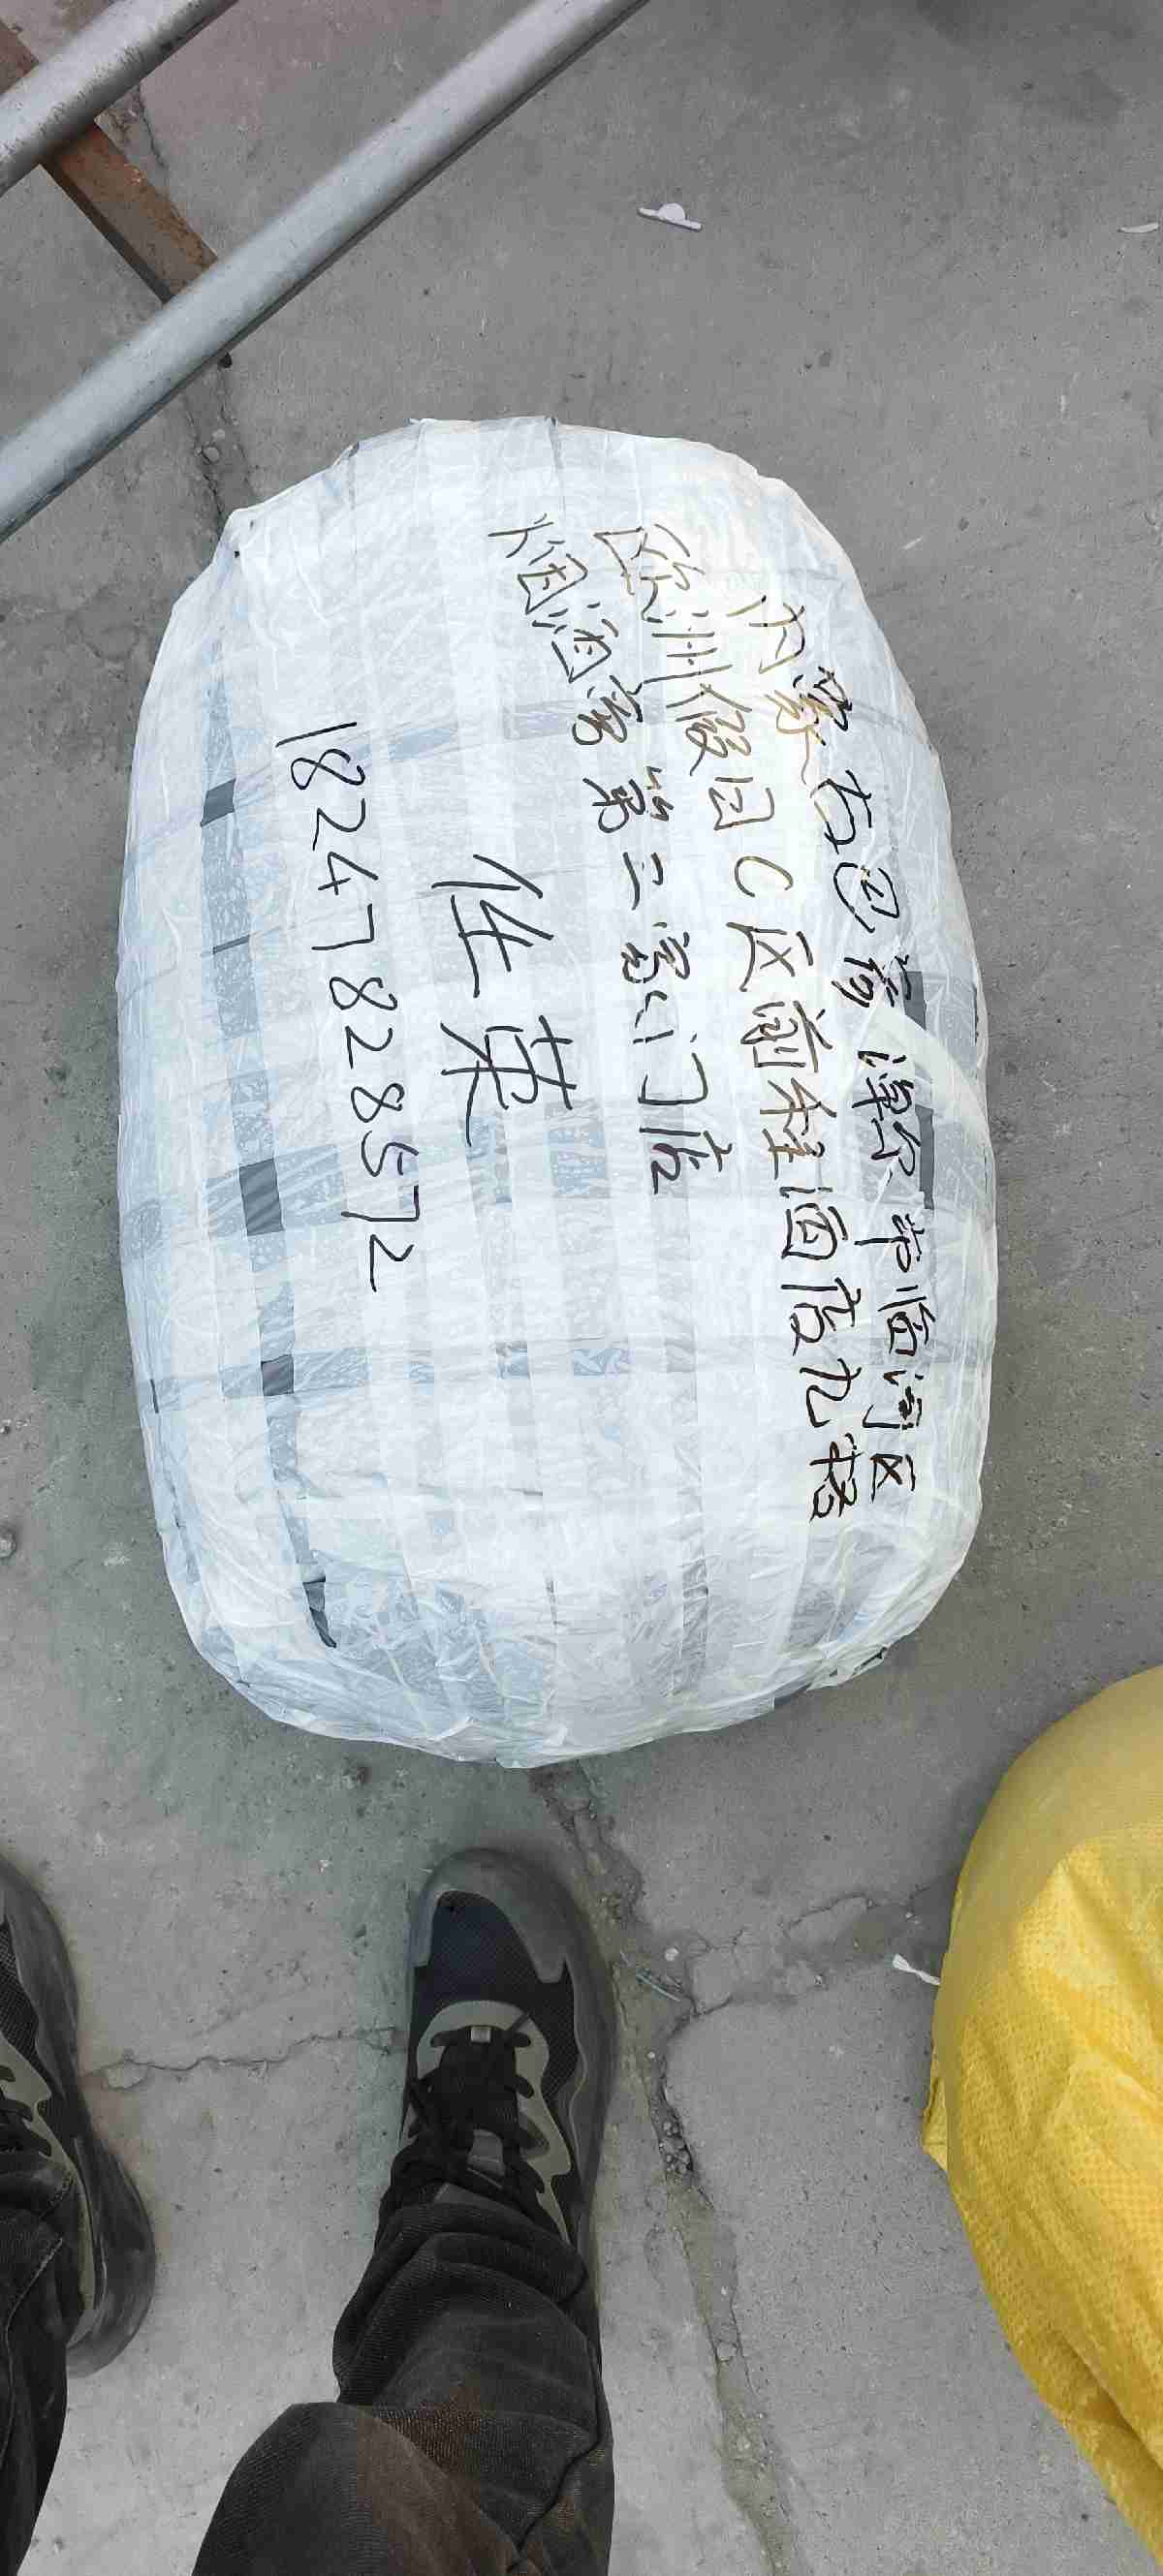 内蒙古巴彦淖尔市临河区
欧洲假日C区前程酒店九楼
烟酒旁第二家门店
任英
18247828572